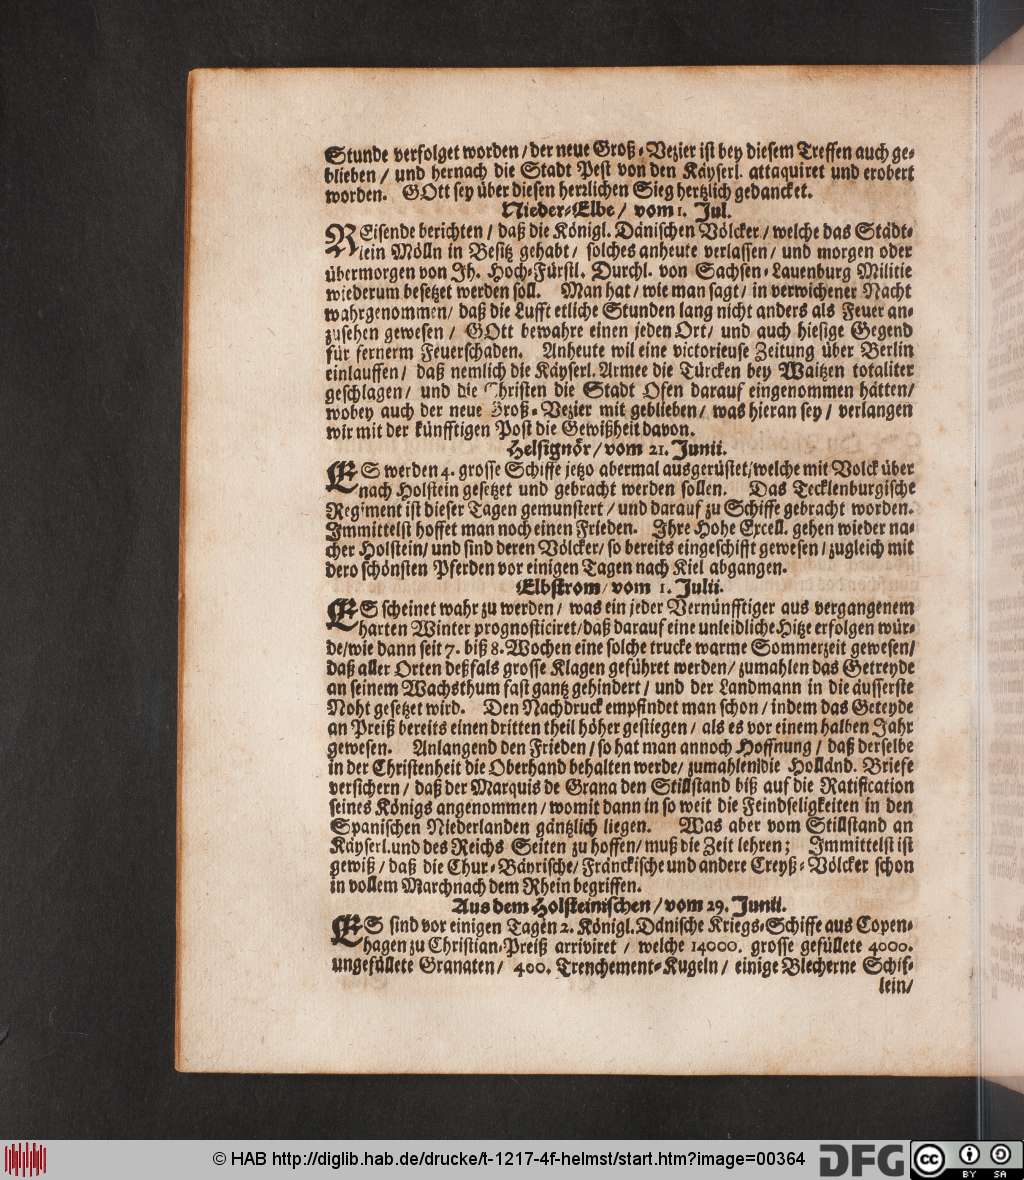 Stunde verfolget worden / der neue Groß-Vezier ist bey diesem Treffen auch ge-
blieben / und hernach die Stadt Pest von den Käyserl. attaquiret und erobert
worden. GOtt sey über diesen herrlichen Sieg hertzlich gedancket.
Nieder-Elbe / vom 1. Jul.
REisende berichten / daß die Königl. Dänischen Völcker / welche das Städt-
lein Mölln in Besitz gehabt / solches anheute verlassen / und morgen oder
übermorgen von Ih. Hoch-Fürstl. Durchl. von Sachsen-Lauenburg Militie
wiederum besetzet werden soll. Man hat / wie man sagt / in verwichener Nacht
wahrgenommen / daß die Lufft etliche Stunden lang nicht anders als Feuer an-
zusehen gewesen / GOtt bewahre einen jeden Ort / und auch hiesige Gegend
für fernerm Feuerschaden. Anheute wil eine victorieuse Zeitung über Berlin
einlauffen / daß nemlich die Käyserl. Armee die Türcken bey Waitzen totaliter
geschlagen / und die Christen die Stadt Ofen darauf eingenommen hätten /
wobey auch der neue Groß-Vezier mit geblieben / was hieran sey / verlangen
wir mit der künfftigen Post die Gewißheit davon.
Helsignör / vom 21. Junii.
ES werden 4. grosse Schiffe jetzo abermal ausgerüstet / welche mit Volck über
nach Holstein gesetzet und gebracht werden sollen. Das Tecklenburgische
Regiment ist dieser Tagen gemunstert / und darauf zu Schiffe gebracht worden.
Immittelst hoffet man noch einen Frieden. Ihre Hohe Excell. gehen wieder na-
cher Holstein / und sind deren Völcker / so bereits eingeschifft gewesen / zugleich mit
dero schönsten Pferden vor einigen Tagen nach Kiel abgangen.
Elbstrom / vom 1. Julii.
ES scheinet wahr zu werden / was ein jeder Vernünfftiger aus vergangenem
harten Winter prognosticiret / daß darauf eine unleidliche Hitze erfolgen wür-
de / wie dann seit 7. biß 8. Wochen eine solche trucke warme Sommerzeit gewesen /
daß aller Orten deßfals grosse Klagen geführet werden / zumahlen das Getreyde
an seinem Wachsthum fast gantz gehindert / und der Landmann in die äusserste
Noht gesetzet wird. Den Nachdruck empfindet man schon / indem das Geteyde
an Preiß bereits einen dritten theil höher gestiegen / als es vor einem halben Jahr
gewesen. Anlangend den Frieden / so hat man annoch Hoffnung / daß derselbe
in der Christenheit die Oberhand behalten werde / zumahlen die Holländ. Briefe
versichern / daß der Marquis de Grana den Stillstand biß auf die Ratification
seines Königs angenommen / womit dann in so weit die Feindseligkeiten in den
Spanischen Niederlanden gäntzlich liegen. Was aber vom Stillstand an
Käyserl. und des Reichs Seiten zu hoffen / muß die Zeit lehren; Immittelst ist
gewiß / daß die Chur-Bäyrische / Fränckische und andere Creyß-Völcker schon
in vollem March nach dem Rhein begriffen.
Aus dem Holsteinischen / vom 29. Junii.
ES sind vor einigen Tagen 2. Königl. Dänische Kriegs-Schiffe aus Copen-
hagen zu Christian-Preiß arriviret / welche 14000. grosse gefüllete 4000.
ungefüllete Granaten / 400. Trenchement-Kugeln / einige Blecherne Schif-
lein /
© HAB http://diglib.hab.de/drucke/t-1217-4f-helmst/start.htm?image=00364
DFG
cc BY SA